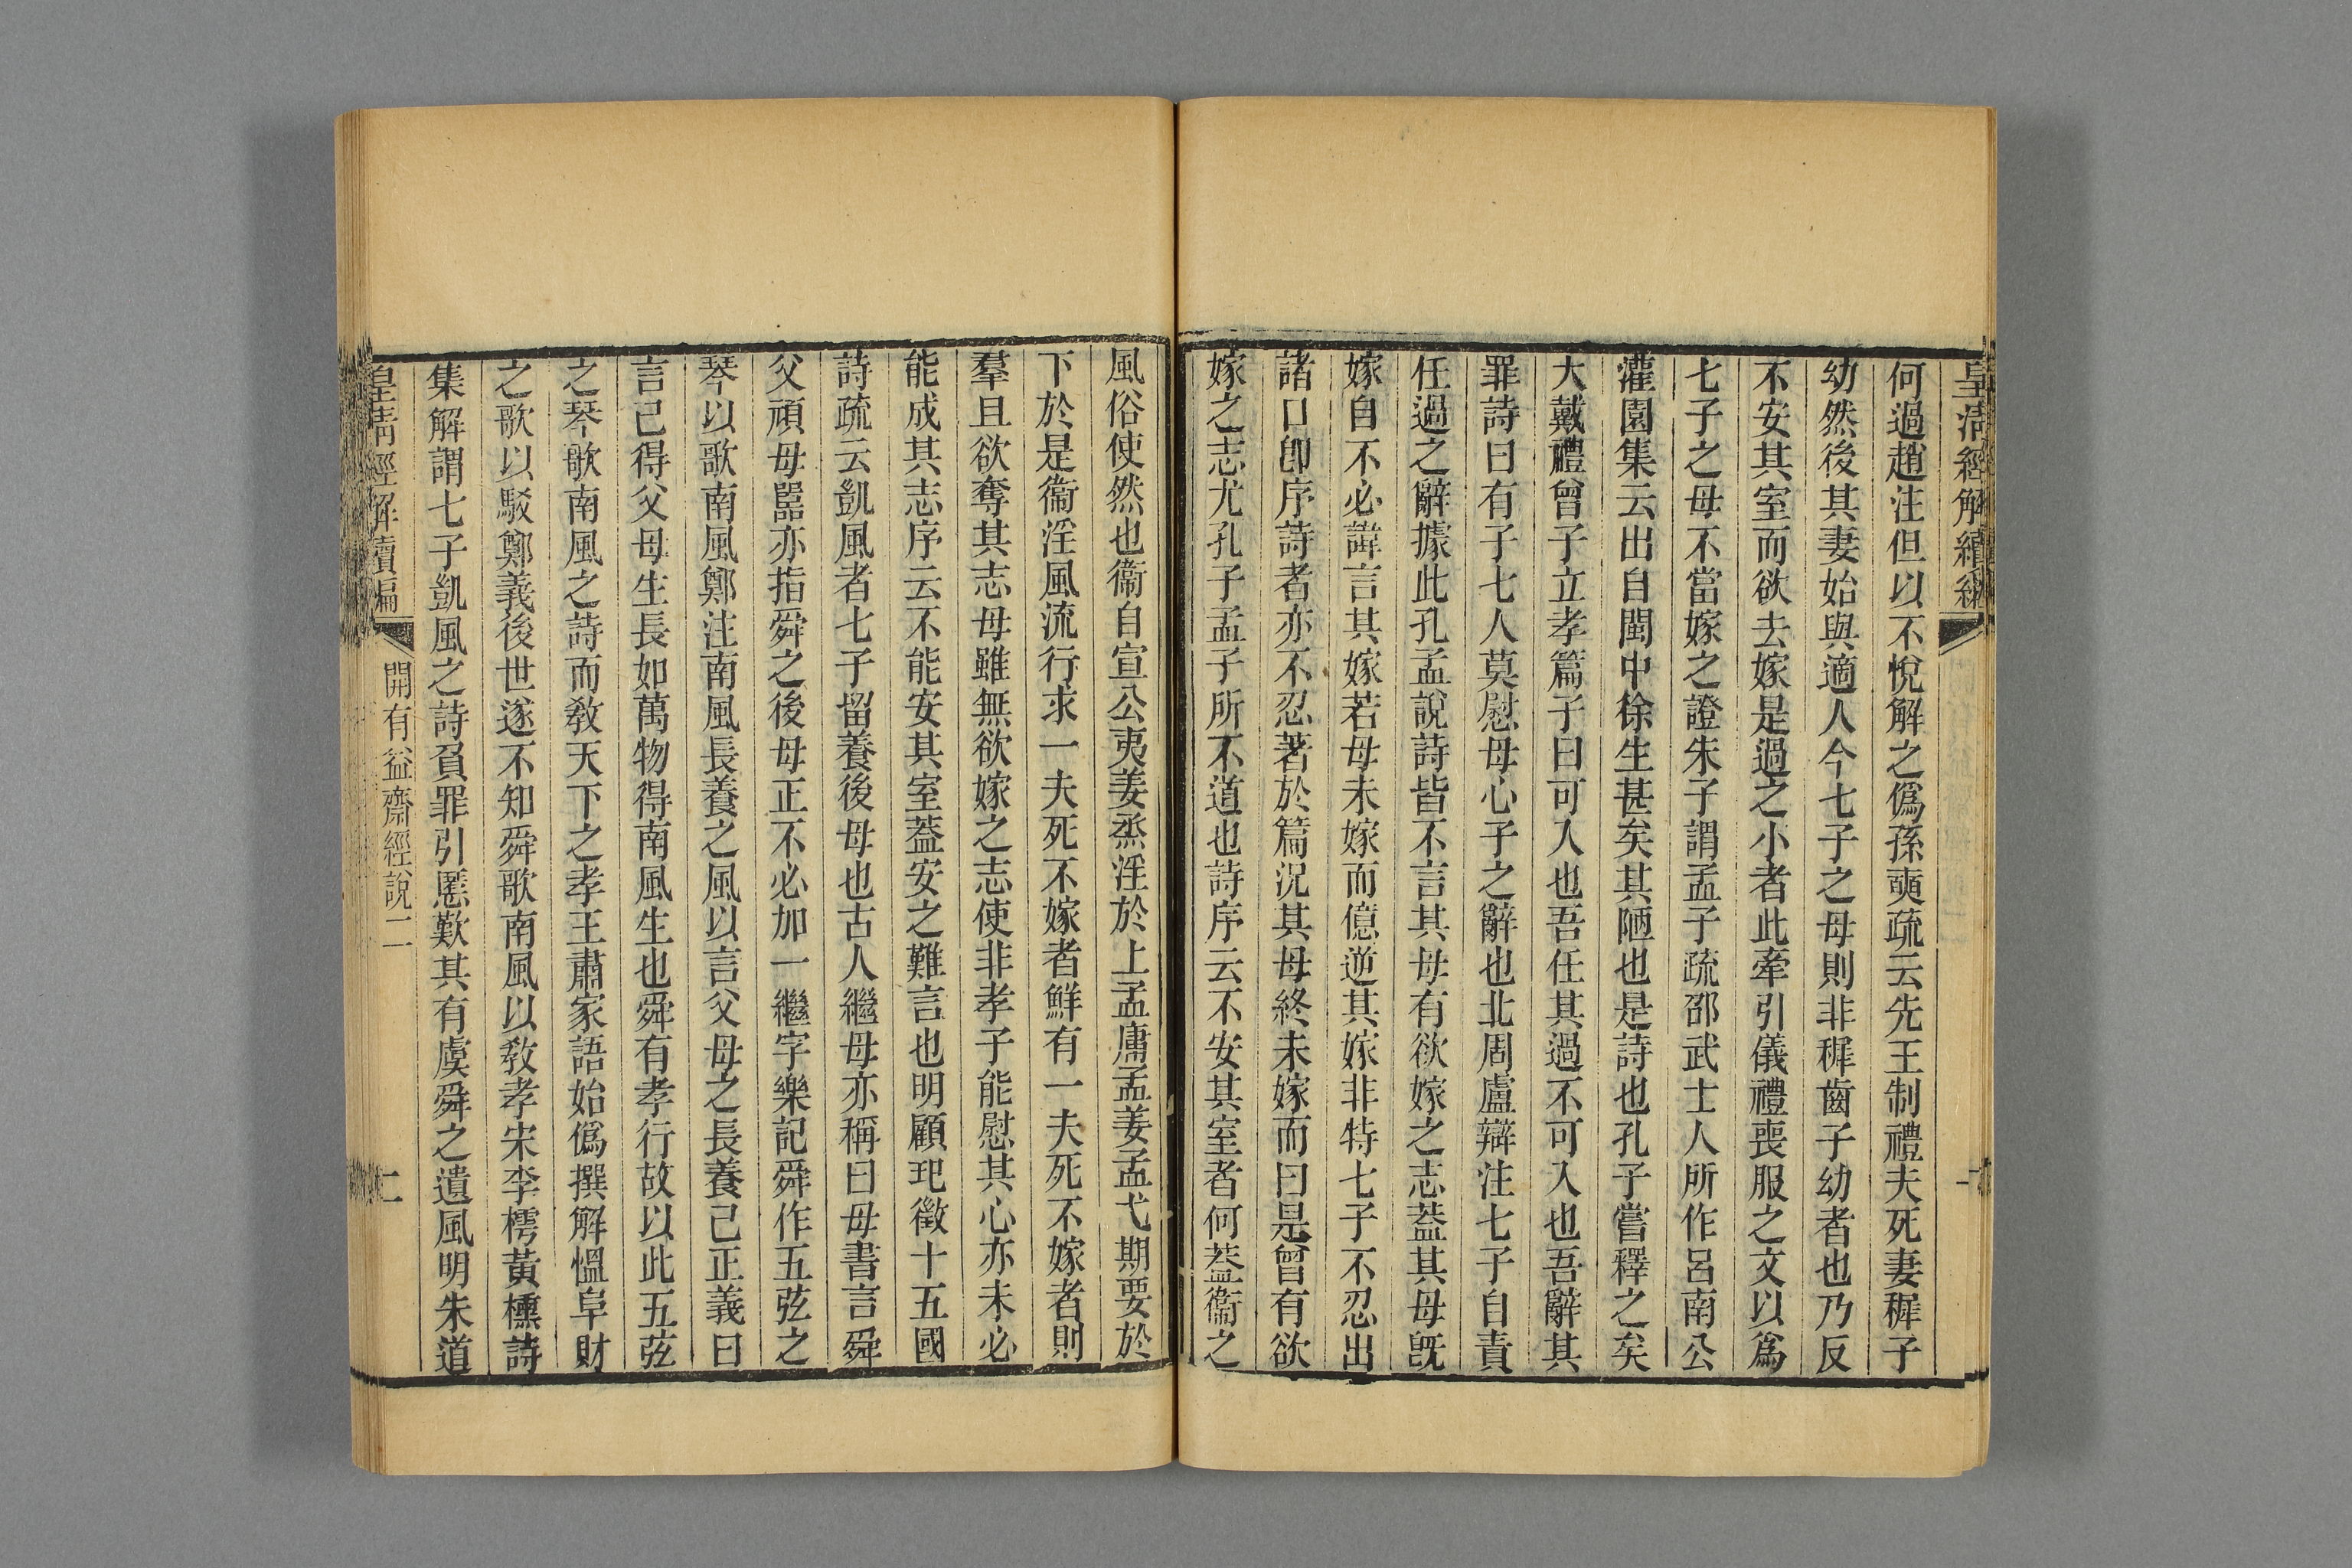 皇清經解續編
何過趙注但以不悅解之僞孫奭疏云先王制禮夫死妻穉子
幼然後其妻始與適人今七子之母則非穉齒子幼者也乃反
不安其室而欲去嫁是過之小者此牽引儀禮喪服之文以爲
七子之母不當嫁之證朱子謂孟子疏邵武士人所作呂南公
灌園集云出自閩中徐生甚矣其陋也是詩也孔子嘗釋之矣
大戴禮曾子立孝篇子曰可入也吾任其過不可入也吾辭其
罪詩曰有子七人莫慰母心子之辭也北周盧辯注七子自責
任過之辭據此孔孟說詩皆不言其母有欲嫁之志葢其母旣
嫁自不必諱言其嫁若母未嫁而億逆其嫁非特七子不忍出
諸口卽序詩者亦不忍著於篇況其母終未嫁而曰是曾有欲
嫁之志尤孔子孟子所不道也詩序云不安其室者何葢衞之
風俗使然也衞自宣公夷姜烝淫於上孟庸孟姜孟弋期要於
下於是衞淫風流行求一夫死不嫁者鮮有一夫死不嫁者則
羣且欲奪其志母雖無欲嫁之志使非孝子能慰其心亦未必
能成其志序云不能安其室葢安之難言也明顧玘徵十五國
詩疏云凱風者七子留養後母也古人繼母亦稱曰母書言舜
父頑母嚚亦指舜之後母正不必加一繼字樂記舜作五弦之
琴以歌南風鄭注南風長養之風以言父母之長養己正義曰
言己得父母生長如萬物得南風生也舜有孝行故以此五弦
之琴歌南風之詩而教天下之孝王肅家語始僞撰解慍阜財
之歌以駁鄭義後世遂不知舜歌南風以敎孝宋李樗黃櫄詩
集解謂七子凱風之詩負罪引慝歎其有虞舜之遺風明朱道
皇清經解續編
開有益齋經說二
二